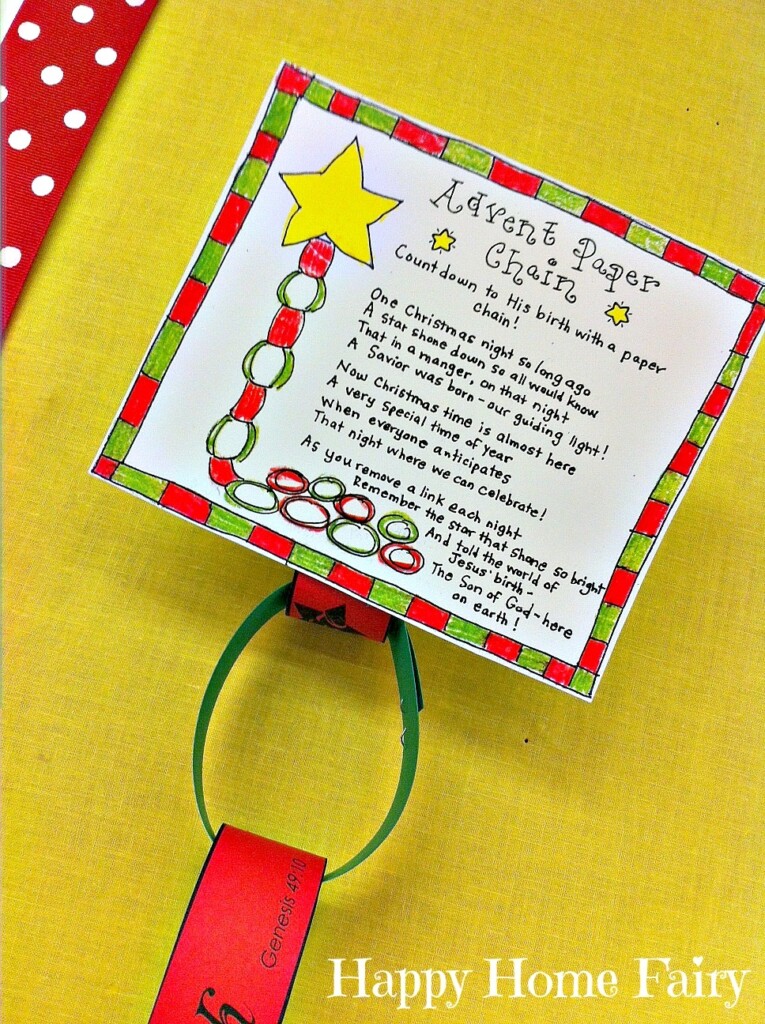 Advent Paper
Chain
Countdown to His birth with a paper
chain!
One Christmas night so long ago
A star shone down so all would know
That in a manger, on that night
A Savior was born - our guiding light!
Now Christmas time is almost here
A very special time of year
When everyone anticipates
That night where we can celebrate!
As you remove a link each night
Remember the star that shone so bright
And told the world of
Jesus' birth -
The Son of God - here
on earth!
Genesis 49:10
h
Happy Home Fairy